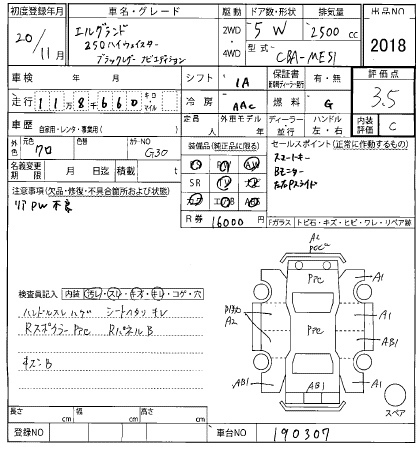 初度登録年月 車名・グレード 駆動 ドア数・形状 排気量 出品NO
20/11月 エルグランド 250ハイウェイスター ブラックレザーナビエディション 2WD・4WD 5 W 2500 cc 2018
型式 CBA-ME51
車検 年 月 シフト IA 保証書 有・無 評価点
走行 118千660 キロ・マイル 冷房 AAC 燃料 G 3.5
車歴 自家用・レンタ・事業用( ) 定員 人 外車モデル 年 ディーラー 並行 ハンドル 左・右 内装評価 C
外色 元色 クロ 色替 カラーNO G30 装備品(純正品に限る) セールスポイント(正常に作動するもの)
名義変更期限 月 日迄 積算 t SR スマートキー
Bモニター
左右Pスライド
注意事項(欠品・修復・不具合箇所および状態)
リア PW 不良
R券 16000 円
Fガラス トビ石・キズ・ヒビ・ワレ・リペア跡
検査員記入 内装(汚レ・スレ・キズ・キレ・コゲ・穴)
ハンドルスレ ハゲ シートヘタリ キレ
Rスポイラー PPC Rパネル B
キズ・B
A2
PPC
A1
A2
A1
AB1
AB1
AB1
A1
スペア
長さ cm 幅 cm 高さ cm
登録NO 車台NO 190307